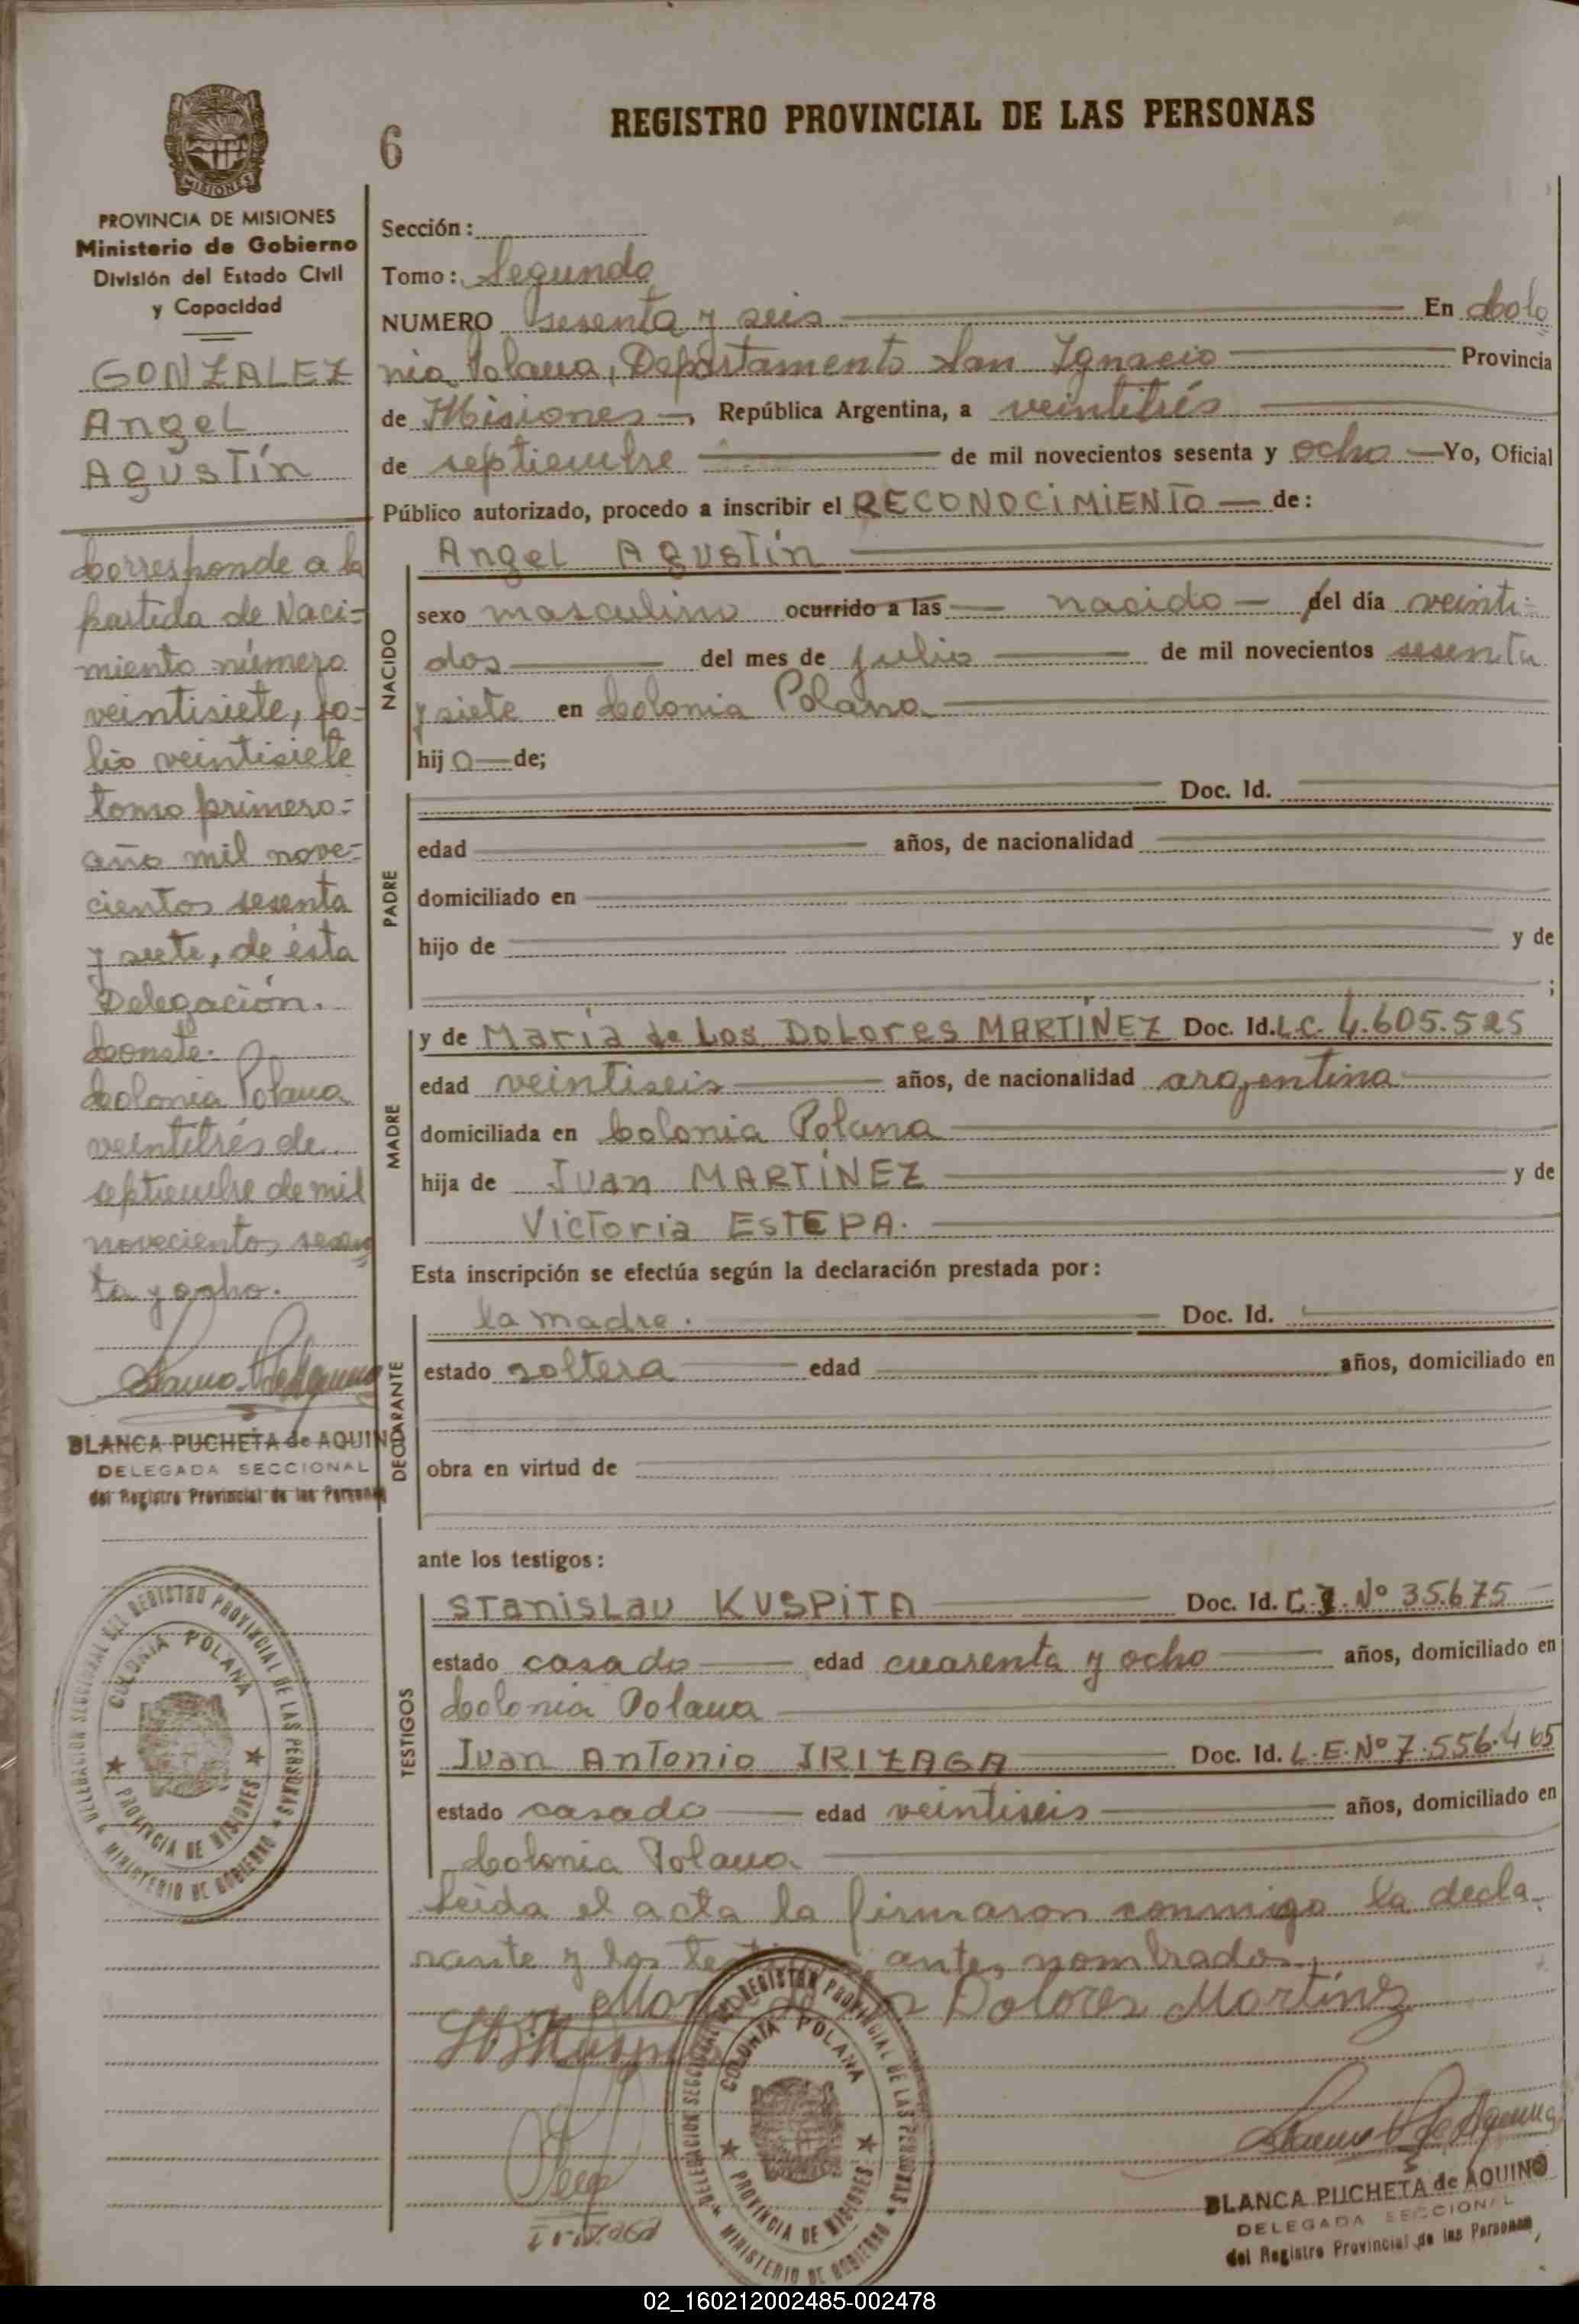 REGISTRO PROVINCIAL DE LAS PERSONAS
6
MISIONES
PROVINCIA DE MISIONES
Ministerio de Gobierno
División del Estado Civil
y Capacidad
GONZALEZ
Angel
Agustín
Corresponde a la
partida de Naci-
miento número
veintisiete, fo-
lio veintisiete
tomo primero-
año mil nove-
cientos sesenta
y siete, de ésta
Delegación.
Conste.
Colonia Polana
veintitrés de
septiembre de mil
novecientos sesen
ta y ocho.
BLANCA PUCHETA de AQUINO
DELEGADA SECCIONAL
del Registro Provincial de las Personas
DELEGACION SECCIONAL DEL REGISTRO PROVINCIAL DE LAS PERSONAS
COLONIA POLANA
PROVINCIA DE MISIONES
MINISTERIO DE GOBIERNO
Sección:
Tomo: Segundo
NUMERO sesenta y seis En Colo
nia Polana, Departamento San Ignacio Provincia
de Misiones, República Argentina, a veintitrés
de septiembre de mil novecientos sesenta y ocho Yo, Oficial
Público autorizado, procedo a inscribir el RECONOCIMIENTO de:
Angel Agustín
NACIDO
sexo masculino ocurrido a las nacido del día veinti-
dos del mes de julio de mil novecientos sesenta
y siete en Colonia Polana
hijo de;
PADRE
Doc. Id.
edad años, de nacionalidad
domiciliado en
hijo de y de
;
MADRE
y de María de Los Dolores MARTÍNEZ Doc. Id. L.C. 4.605.525
edad veintiseis años, de nacionalidad argentina
domiciliada en Colonia Polana
hija de Juan MARTÍNEZ y de
Victoria ESTEPA.
Esta inscripción se efectúa según la declaración prestada por:
DECLARANTE
la madre. Doc. Id.
estado soltera edad años, domiciliado en
obra en virtud de
ante los testigos:
TESTIGOS
Stanislau KUSPITA Doc. Id. C.I. Nº 35.675
estado casado edad cuarenta y ocho años, domiciliado en
Colonia Polana
Juan Antonio IRIZAGA Doc. Id. L.E. Nº 7.556.465
estado casado edad veintiseis años, domiciliado en
Colonia Polana
Leída el acta la firmaron conmigo la decla-
rante y los testigos antes nombrados.
María de los Dolores Martínez
DELEGACION SECCIONAL DEL REGISTRO PROVINCIAL DE LAS PERSONAS
COLONIA POLANA
PROVINCIA DE MISIONES
MINISTERIO DE GOBIERNO
BLANCA PUCHETA de AQUINO
DELEGADA SECCIONAL
del Registro Provincial de las Personas
02_160212002485-002478